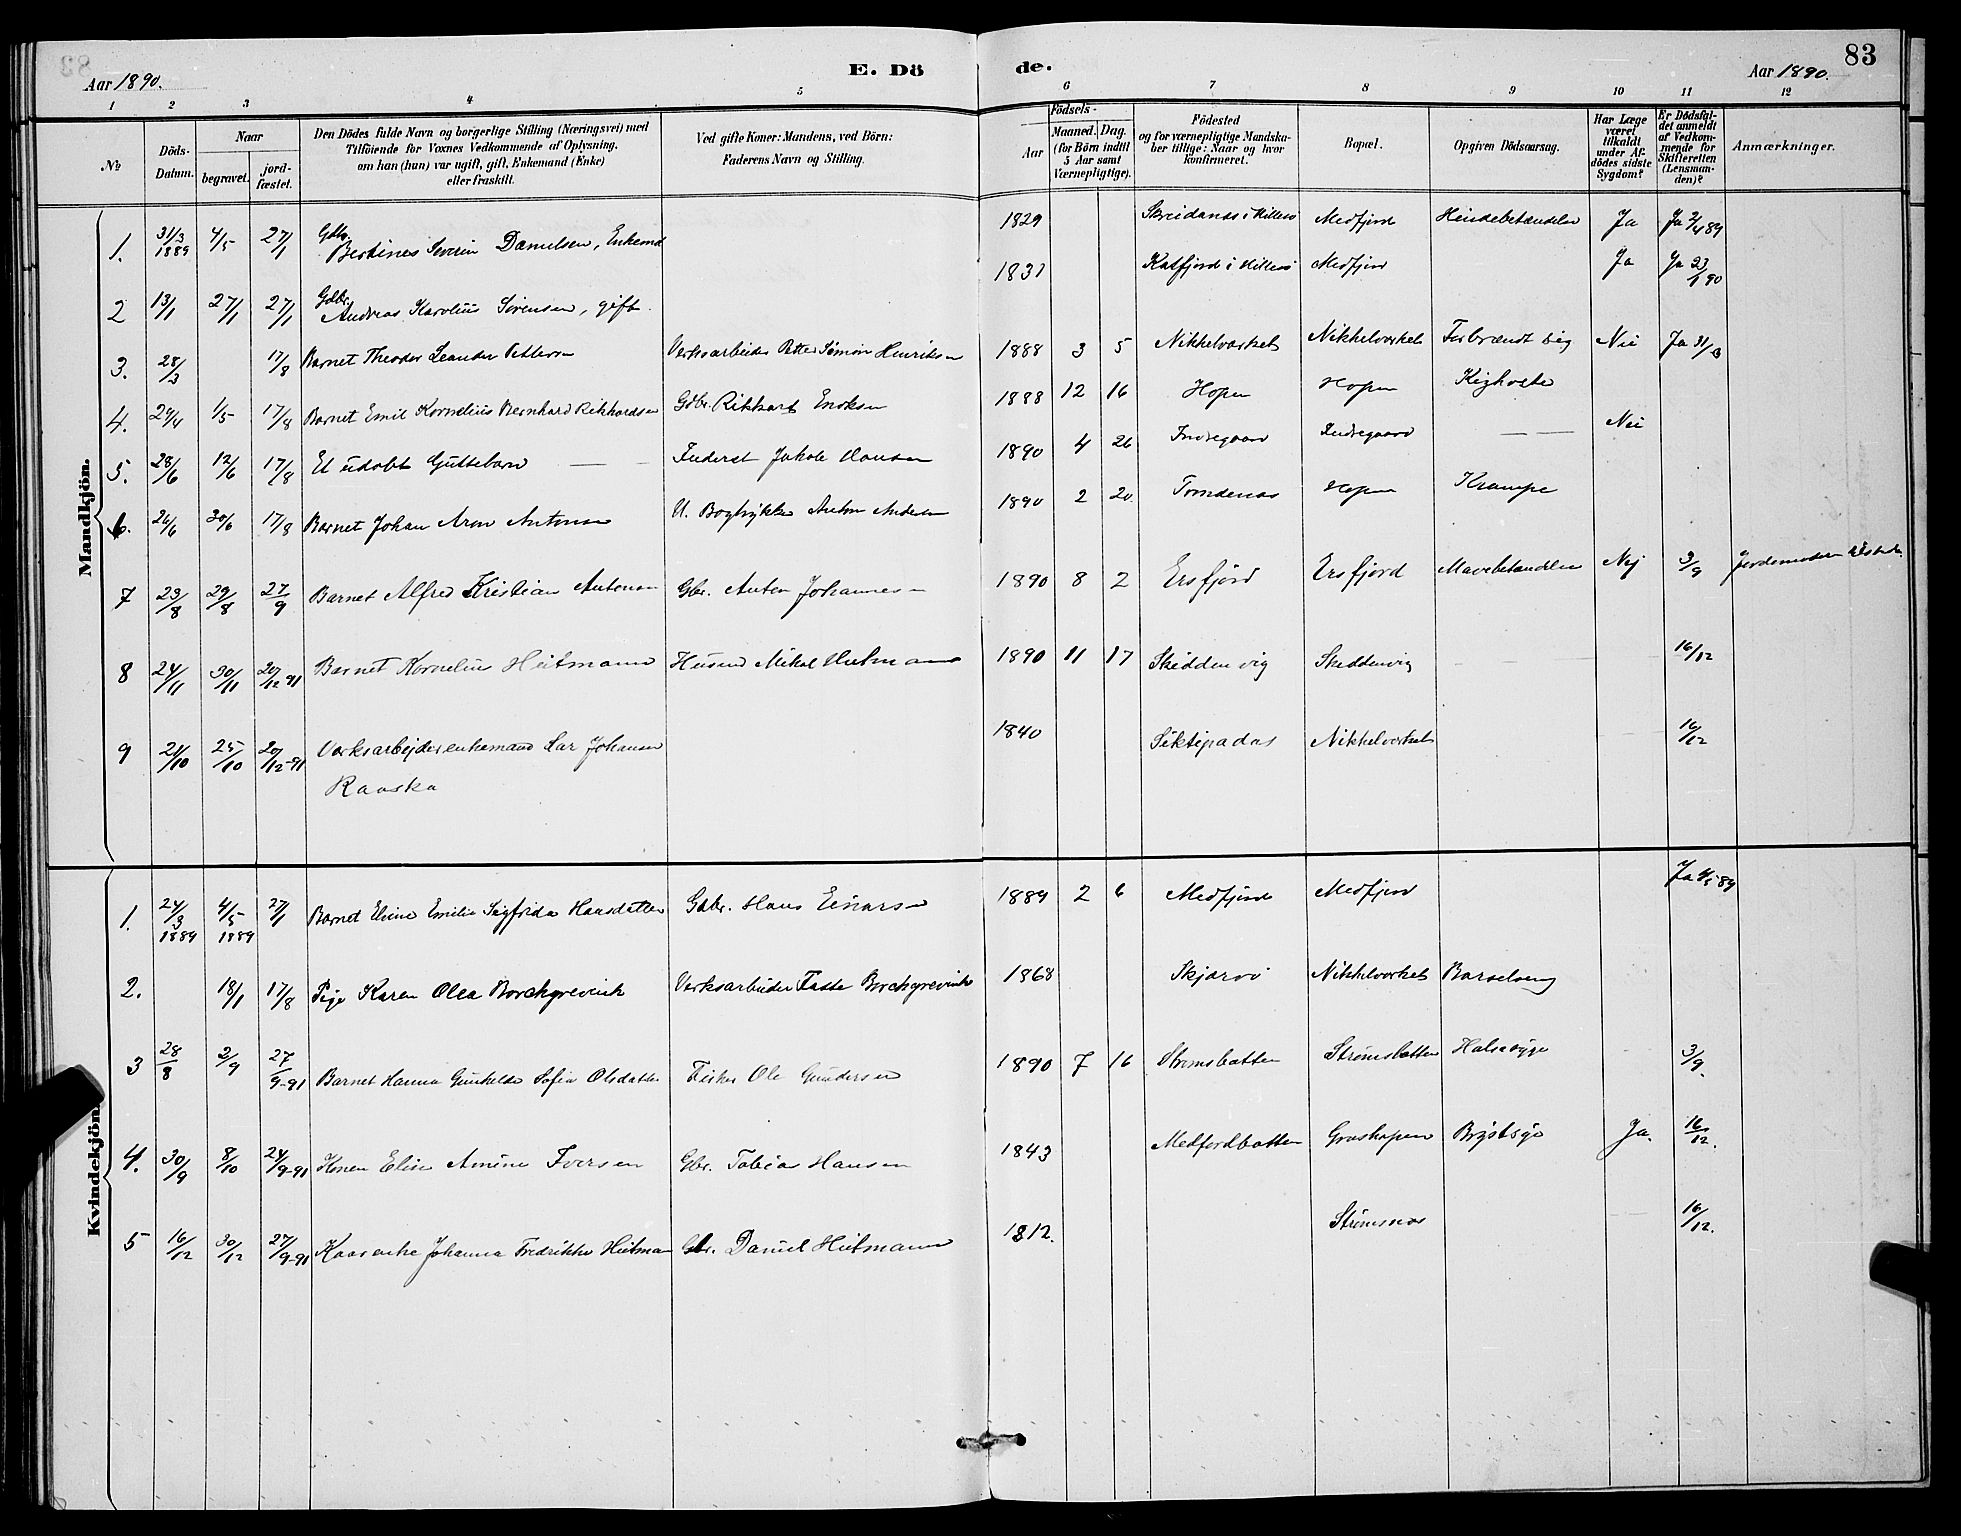 83
Aar 1890.
E. Dö
de.
Aar 1890.
1 2 3 4 5 6 7 8 9 10 11 12
№
Döds-
Datum.
Naar
begravet.
jord-
fæstet.
Den Dödes fulde Navn og borgerlige Stilling (Næringsvei) med
Tilföiende for Voxnes Vedkommende af Oplysning,
om han (hun) var ugift, gift, Enkemand (Enke)
eller fraskilt.
Ved gifte Koner: Mandens, ved Börn:
Faderens Navn og Stilling.
Födsels-
Aar
Maaned. Dag.
(for Börn indtil
5 Aar samt
Værnepligtige).
Födested
og for værnepligtige Mandska-
ber tillige: Naar og hvor
konfirmeret.
Bopæl.
Opgiven Dödsaarsag.
Har Læge
været
tilkaldt
under Af-
dödes sidste
Sygdom?
Er Dödsfal-
det anmeldt
af Vedkom-
mende for
Skifteretten
(Lensman-
den)?
Anmærkninger.
Mandkjön.
1. 31/3 1889 4/5 27/1 Gdbr. Bertines Severin Danielsen, Enkemd 1829 Medfjord Ja Ja 2/4 89
2 13/1 27/1 27/1 Gdbr. Andreas Karolius Sørensen, gift. 1831 Katfjord i Hillesø Medfjord Ja Ja 23/1 90
3. 28/3 17/8 Barnet Theodor Leander Pettersen Verksarbeider Petter Simon Henriksen 1888 3 5 Nikkelværket Nikkelværket Forbrændt sig Nei Ja 31/3
4. 29/4 1/5 17/8 Barnet Emil Kornelius Bernhard Rikhardsen Gdbr. Rikhart Enoksen 1888 12 16 Hopen Hopen Kighoste
5. 28/6 12/6 17/8 Et udøbt Guttebarn — Inderst Jakob Hansen 1890 4 26 Indregaard Indregaard — — Nei
6. 26/6 30/6 17/8 Barnet Johan Aron Antonsen U. Bogtrykker Anton Andersen 1890 2 20. Hopen Krampe
7 23/8 29/8 27/9 Barnet Alfred Kristian Antonsen Gbr. Anton Johannesen 1890 8 2 Ersfjord Ersfjord Mavebetændelse Nej 3/9 Jordemoderen
8 24/11 30/11 20/12-91 Barnet Kornelius Heitmann Husmd Mikal Heitmann 1890 11 17 Skeddenvig Skeddenvig 16/12
9 21/10 25/10 20/12-91 Værksarbejder enkemand Lar Johansen
Raaska 1840 Nikkelværket 16/12
Kvindekjön.
1. 24/3 1889 4/5 1889 27/1 Barnet Eline Emilie Sigfrida Hansdatter Gdbr. Hans Einarsen 1889 2 6 Medfjord Medfjord Ja 4/5-89
2. 18/1 17/8 Pige Karen Olea Borchgrevink Verksarbeider Faste Borchgrevink 1868 Skjærvø Nikkelværket Barselseng
3 28/8 2/9 27/9-91 Barnet Hanna Gunhilde Sofia Olsdatter Fisker Ole Gundersen 1890 7 16 Strømsbotten Strømsbotten Halssyge 3/9.
4. 30/9 8/10 27/9-91 Konen Elise Amine Iversen Gbr. Tobias Hansen 1843 Medfordbotten Grashopen Brystsyge Ja. 16/12.
5 16/12 30/12 27/9-91 Kaarenke Johanna Fredrikke Heitman Gbr. Daniel Heitmann 1812. Strømsnes 16/12.